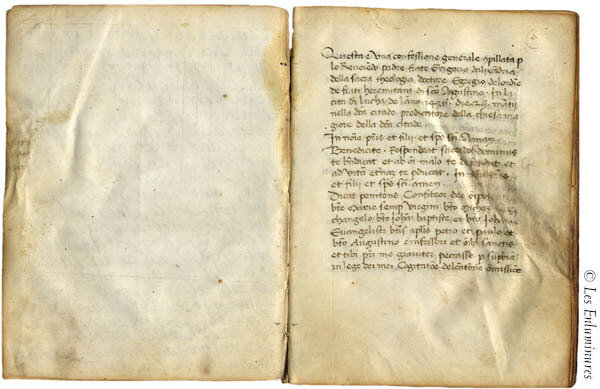 Questa e una confessione generale (con)pillata p
lo Reverēdo padre frate Grigorio
della sacra theologia doctore Egregio delordīe
de frati heremitani di sc̄o Agustino. In la
cita di Lucha
nella dc̄a citade predicatore della chiesa ma
giore della dc̄a citade
In noīe pr̄is et filii et sp̄s sc̄i. Amen
Benedicite. Respondeat sacerdos. dominus
te bn̄dicat et ab oī malo te defendat et
ad vitā etnā te pducat. In
et filii et sp̄s sc̄i. amen.
Dicat penitens. Confiteor deo oīpotenti
bt̄e Marie semp virgini bt̄o
changelo, bt̄o Johāni baptiste, et bt̄o Johāni
Evangeliste bt̄is ap̄lis petro et paulo, et
bt̄o Augustino confessori et oīb; sanctis
et tibi pr̄i me graviter peccasse p supbiā
in lege dei mei, Cogitatōe delectatōne omissiōe
© Les Enluminures